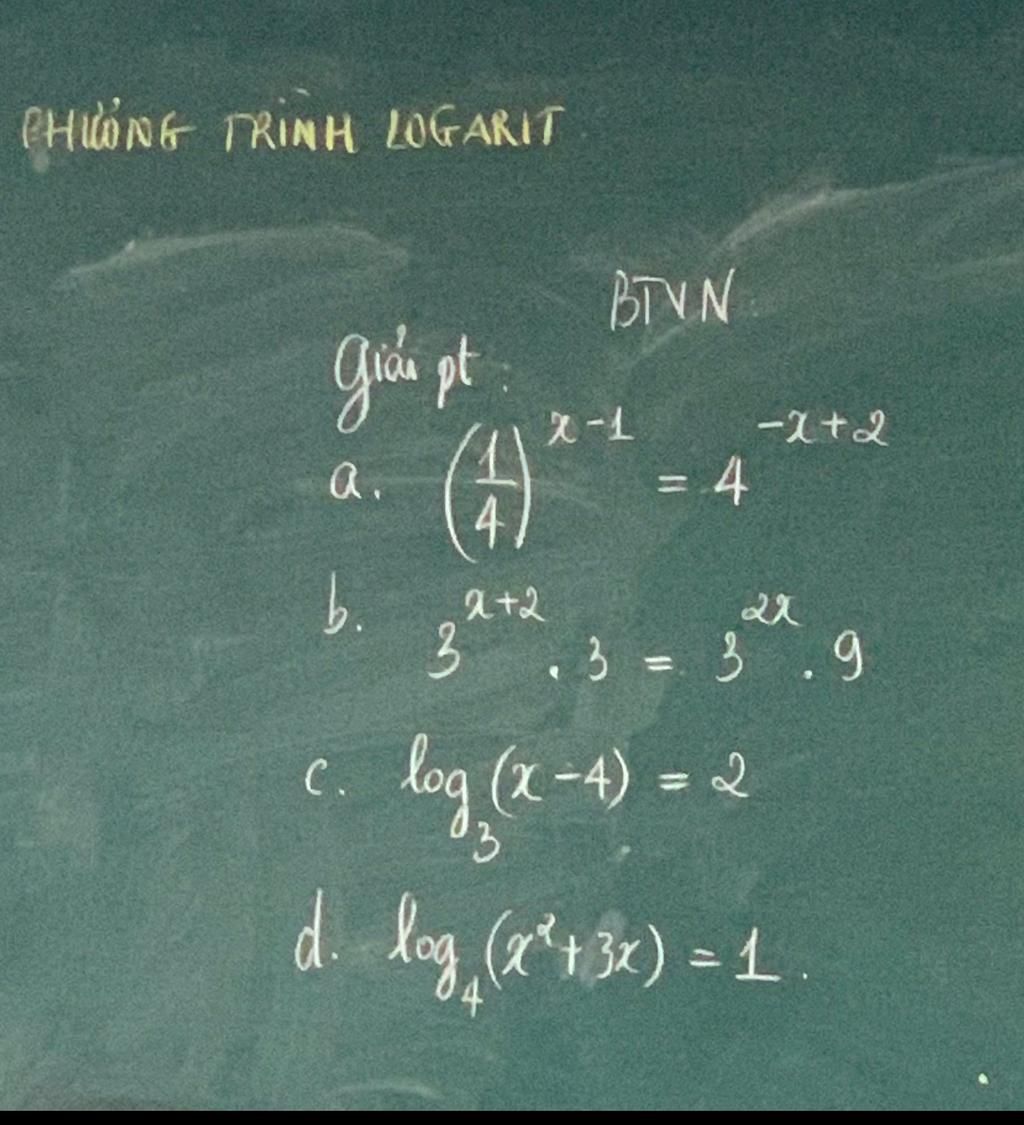 PHƯƠNG TRÌNH LOGARIT
BTVN
Giải pt:
a. (1/4)^(x-1) = 4^(-x+2)
b. 3^(x+2) . 3 = 3^(2x) . 9
c. log₃(x-4) = 2
d. log₄(x²+3x) = 1.